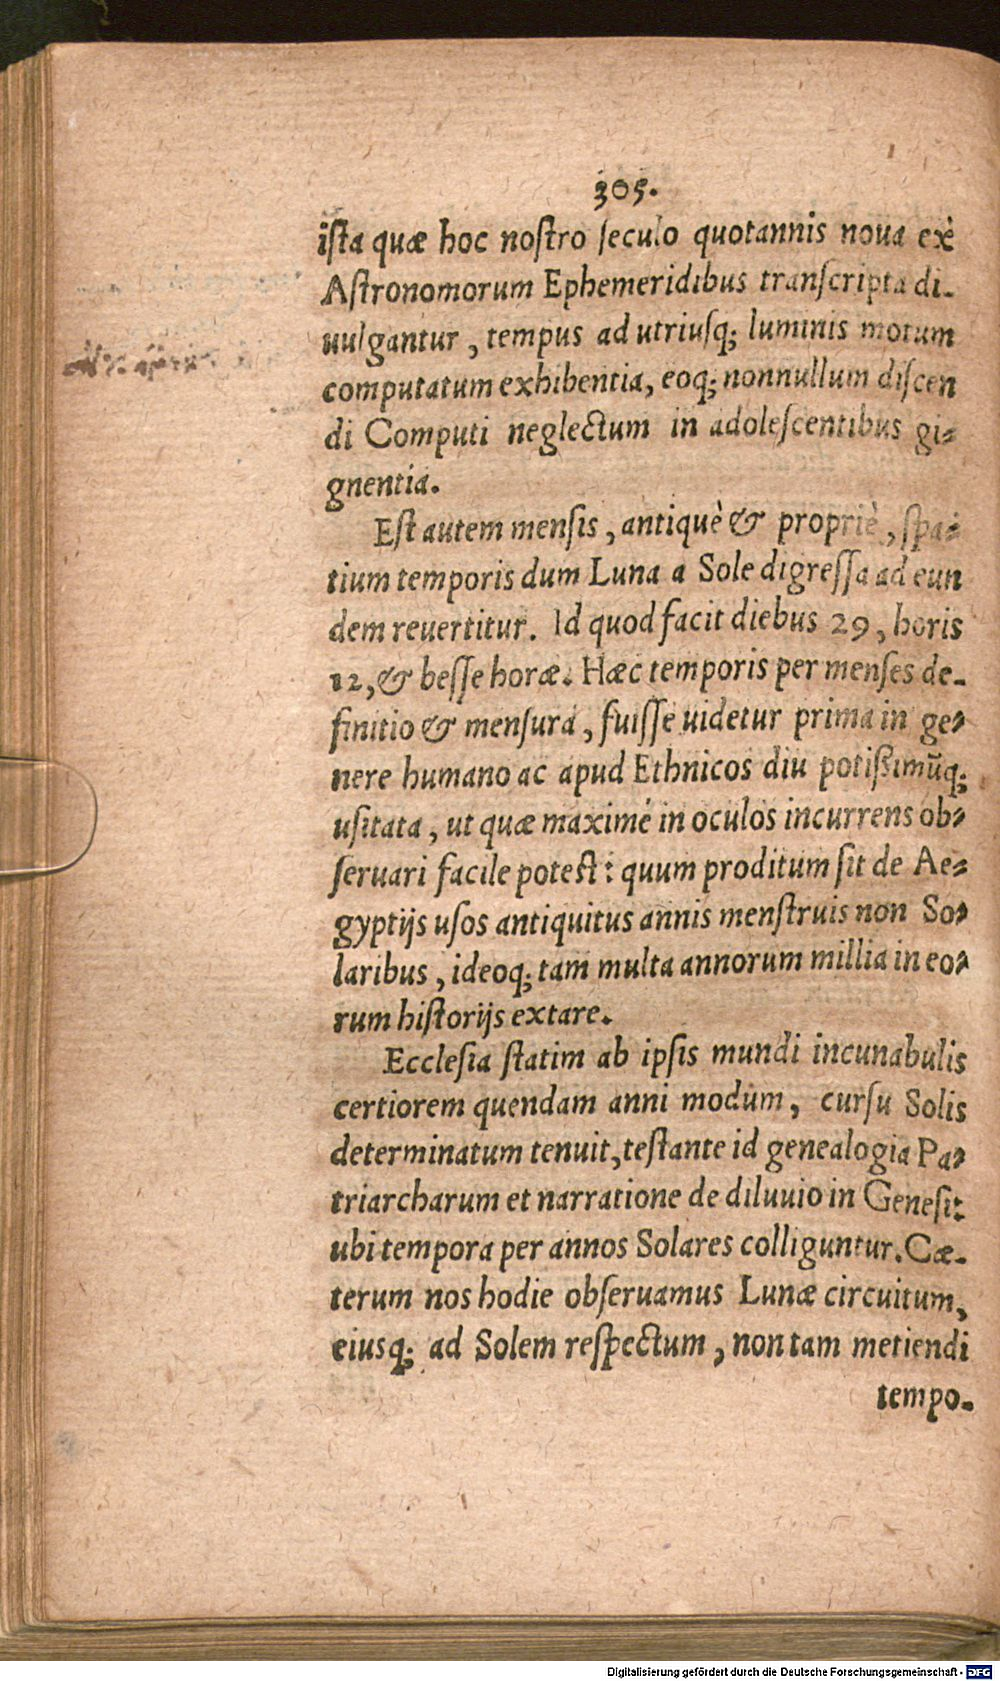 305.
iſta quæ hoc noſtro ſeculo quotannis noua ex
Aſtronomorum Ephemeridibus tranſcripta di-
uulgantur, tempus ad utriuſq; luminis motum
computatum exhibentia, eoq; nonnullum diſcen
di Computi neglectum in adoleſcentibus gi-
gnentia.
Eſt autem menſis, antiquè & propriè, ſpa-
tium temporis dum Luna a Sole digreſſa ad eun
dem reuertitur. Id quod facit diebus 29, horis
12, & beſſe horæ. Hæc temporis per menſes de-
finitio & menſura, fuiſſe uidetur prima in ge-
nere humano ac apud Ethnicos diu potiſsimũq;
uſitata, ut quæ maximè in oculos incurrens ob-
ſeruari facile poteſt: quum proditum ſit de Ae-
gyptijs uſos antiquitus annis menſtruis non So-
laribus, ideoq; tam multa annorum millia in eo-
rum hiſtorijs extare.
Eccleſia ſtatim ab ipſis mundi incunabulis
certiorem quendam anni modum, curſu Solis
determinatum tenuit, teſtante id genealogia Pa-
triarcharum et narratione de diluuio in Geneſi:
ubi tempora per annos Solares colliguntur. Cæ-
terum nos hodie obſeruamus Lunæ circuitum,
eiusq; ad Solem reſpectum, non tam metiendi
tempo-
Digitalisierung gefördert durch die Deutsche Forschungsgemeinschaft - DFG